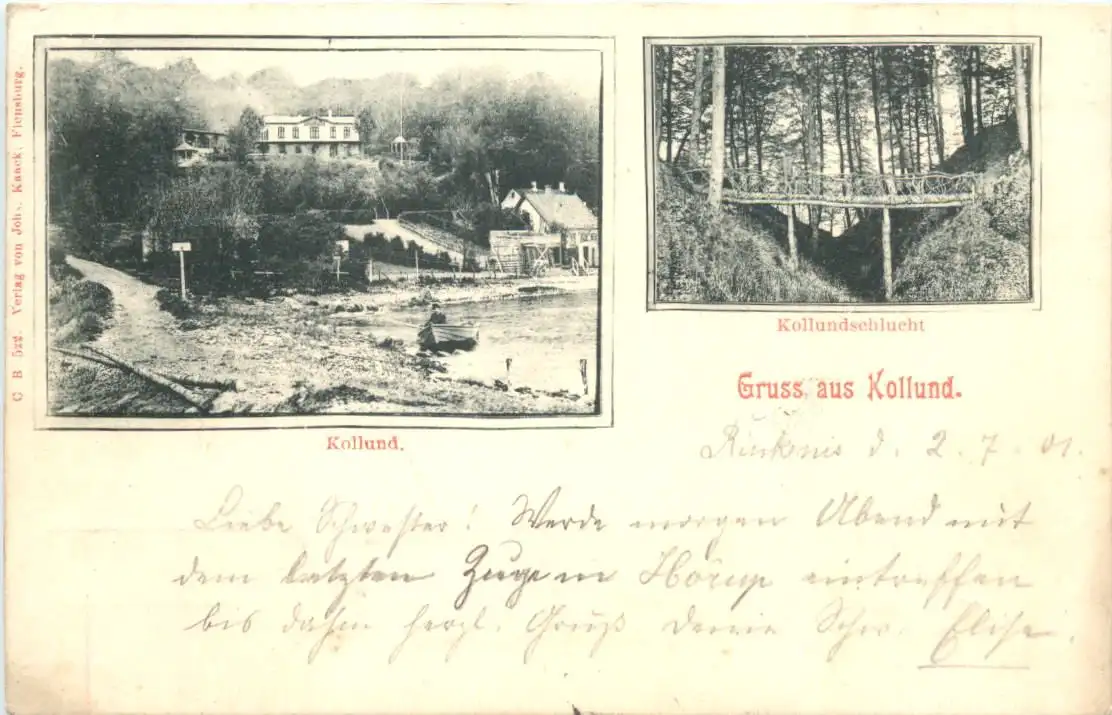 C B 522. Verlag von Johs. Kaack, Flensburg.
Kollund.
Kollundschlucht
Gruss aus Kollund.
d. 2. 7. 01.
Liebe Schwester! Werde morgen Abend mit
dem letzten Zuge in Hörup eintreffen
bis dahin herzl. Gruß deine Schw. Elise.